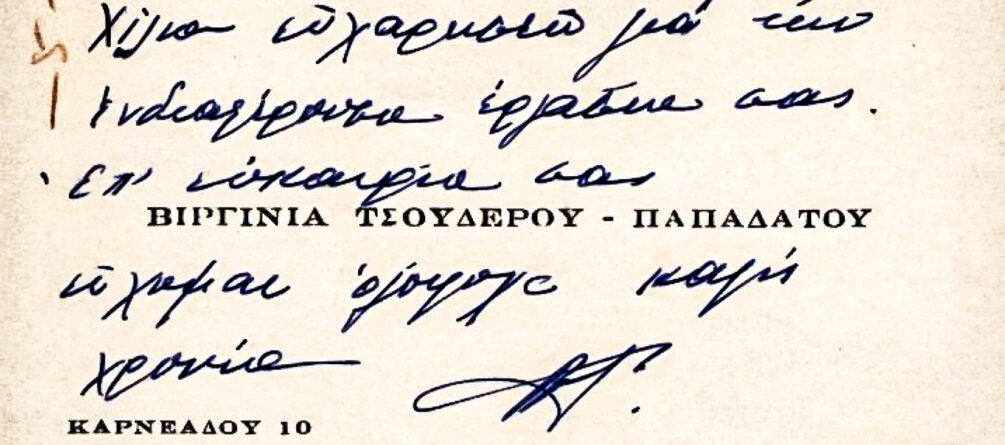 Χίλια εὐχαριστῶ γιά τήν
ἐνδιαφέρουσα ἐργασία σας.
Ἐπ' εὐκαιρία σας
ΒΙΡΓΙΝΙΑ ΤΣΟΥΔΕΡΟΥ - ΠΑΠΑΔΑΤΟΥ
εὔχομαι ὁλόψυχα καλή
χρονιά
ΚΑΡΝΕΑΔΟΥ 10